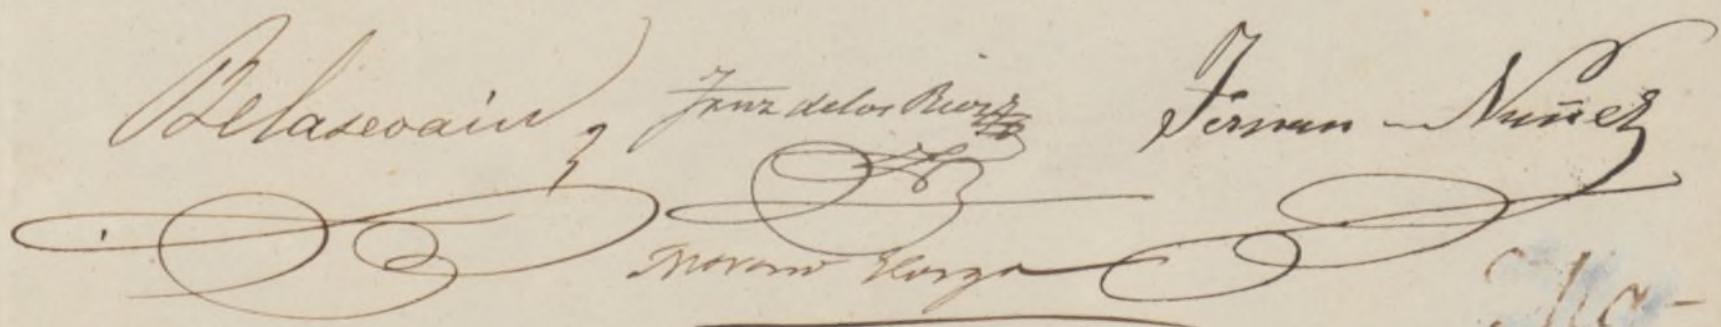 Belascoain Frnz de los Rios Fernan-Nuñez
Moreno